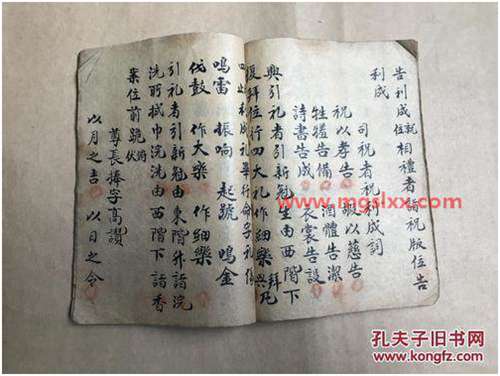 告利成 就位 相禮者詣祝版位告
利成
司祝者祝利成詞
祝以孝告 嘏以慈告
牲犧告備 酒醴告潔
詩書告成 衣裳告設
興引礼者引新冠生由西階下
復拜位行四大礼作樂 興拜凡
四 利成相礼畢行命字礼儀
鳴雷 振响 起號 鳴金
伐鼓 作大樂 作細樂
引礼者引新冠由東階升詣浣
洗所拭巾浣洗由西階下詣香
案位前跪 俯伏
尊長捧字高讚
以月之吉 以日之令
www.mgslxx.com
孔夫子旧书网
www.kongfz.com